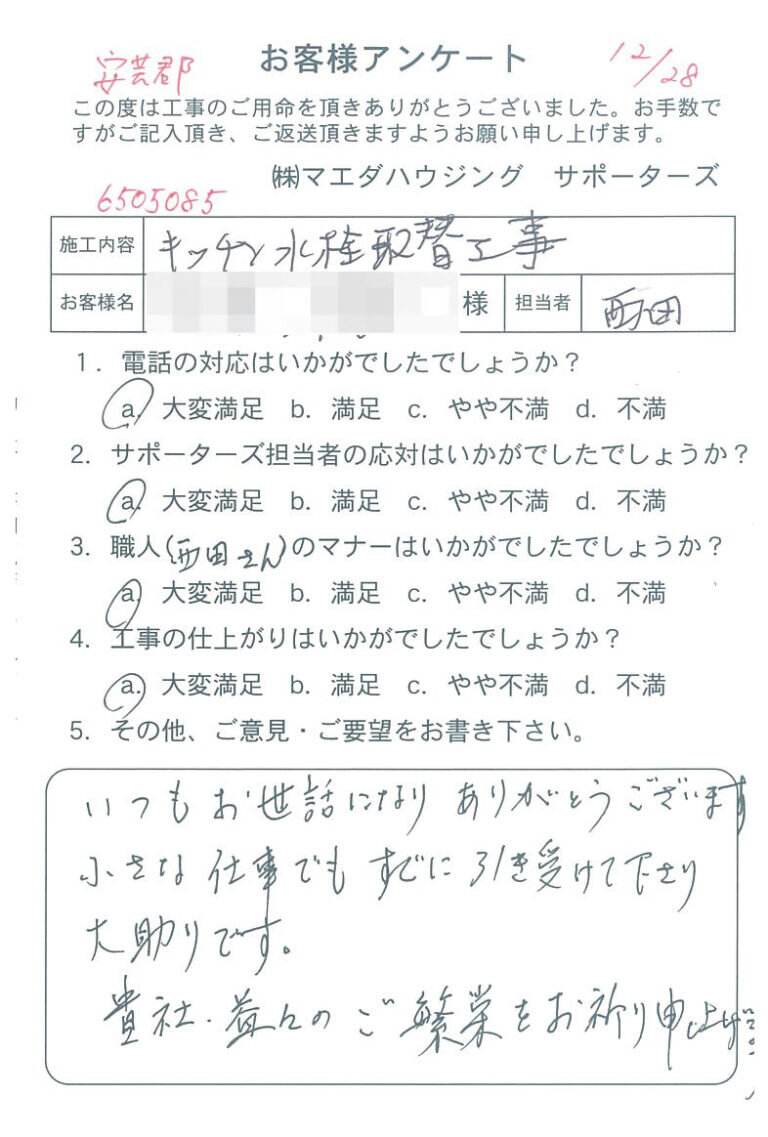 安芸郡
お客様アンケート
12/28
この度は工事のご用命を頂きありがとうございました。お手数で
すがご記入頂き、ご返送頂きますようお願い申し上げます。
㈱マエダハウジング サポーターズ
6505085
施工内容 キッチン水栓取替工事
お客様名 様 担当者 西田
1. 電話の対応はいかがでしたでしょうか？
a. 大変満足 b. 満足 c. やや不満 d. 不満
2. サポーターズ担当者の応対はいかがでしたでしょうか？
a. 大変満足 b. 満足 c. やや不満 d. 不満
3. 職人(西田さん)のマナーはいかがでしたでしょうか？
a. 大変満足 b. 満足 c. やや不満 d. 不満
4. 工事の仕上がりはいかがでしたでしょうか？
a. 大変満足 b. 満足 c. やや不満 d. 不満
5. その他、ご意見・ご要望をお書き下さい。
いつもお世話になり ありがとうございます
小さな仕事でも すぐに引き受けて下さり
大助りです。
貴社.益々のご繁栄をお祈り申し上げ